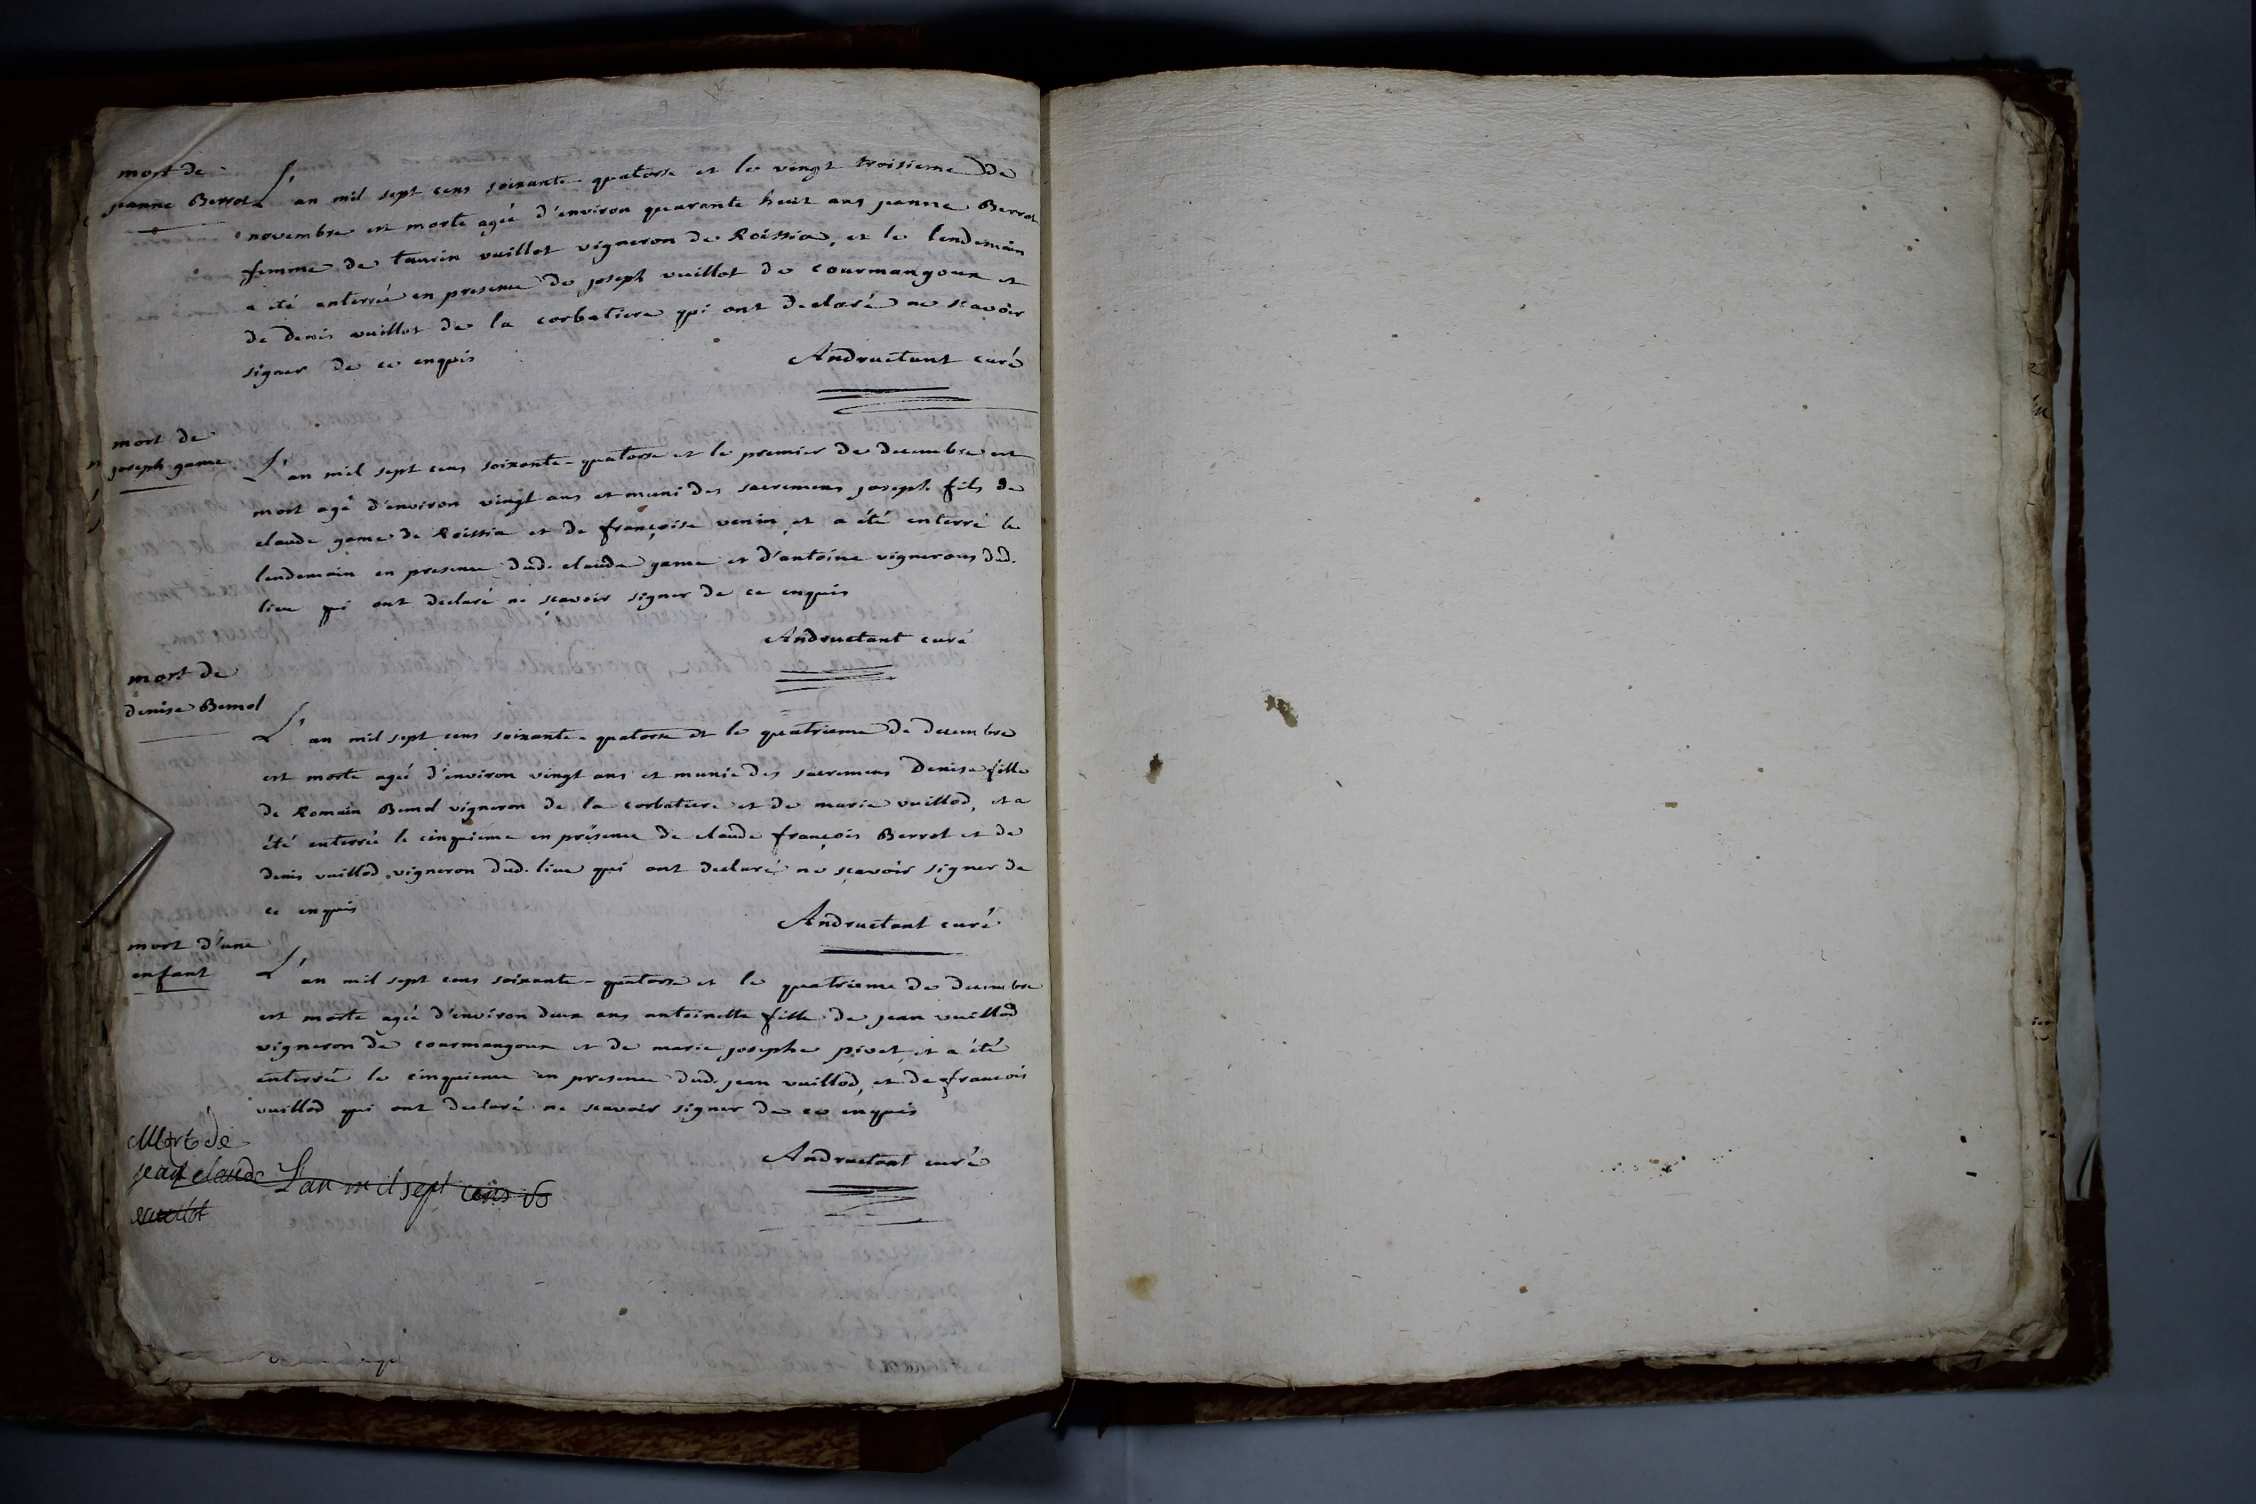 mort de
jeanne Berrot
L'an mil sept cens soixante-quatorse et le vingt troisieme de
novembre est morte agée d'environ quarante huit ans jeanne Berrot
femme de taurin vuillot vigneron de Roissia, et le lendemain
a été enterrée en presence de joseph vuillot de courmangoux et
de denis vuillot de la corbatiere qui ont declaré ne scavoir
signer de ce enquis
Andructant curé
mort de
joseph game
L'an mil sept cens soixante-quatorse et le premier de decembre est
mort agé d'environ vingt ans et muni des sacremens joseph fils de
claude game de Roissia et de françoise venin et a été enterré le
lendemain en presence dud. claude game et d'antoine vignerons dud.
lieu qui ont declaré ne scavoir signer de ce enquis
Andructant curé
mort de
denise Bemol
L'an mil sept cens soixante-quatorse et le quatrieme de decembre
est morte agée d'environ vingt ans et munie des sacremens Denise fille
de Romain Bemol vigneron de la corbatiere et de marie vuillod, et a
été enterrée le cinquieme en présence de claude françois Berrot et de
denis vuillod vigneron dud. lieu qui ont declaré ne sçavoir signer de
ce enquis
Andructant curé
mort d'une
enfant
L'an mil sept cens soixante-quatorse et le quatrieme de decembre
est morte agée d'environ deux ans antoinette fille de jean vuillod
vigneron de courmangoux et de marie josephe pivet, et a été
enterrée le cinquieme en presence dud. jean vuillod, et de francois
vuillod qui ont declaré ne scavoir signer de ce enquis
Andructant curé
Mort de
jean claude
L'an mil sept cens so
vuillot